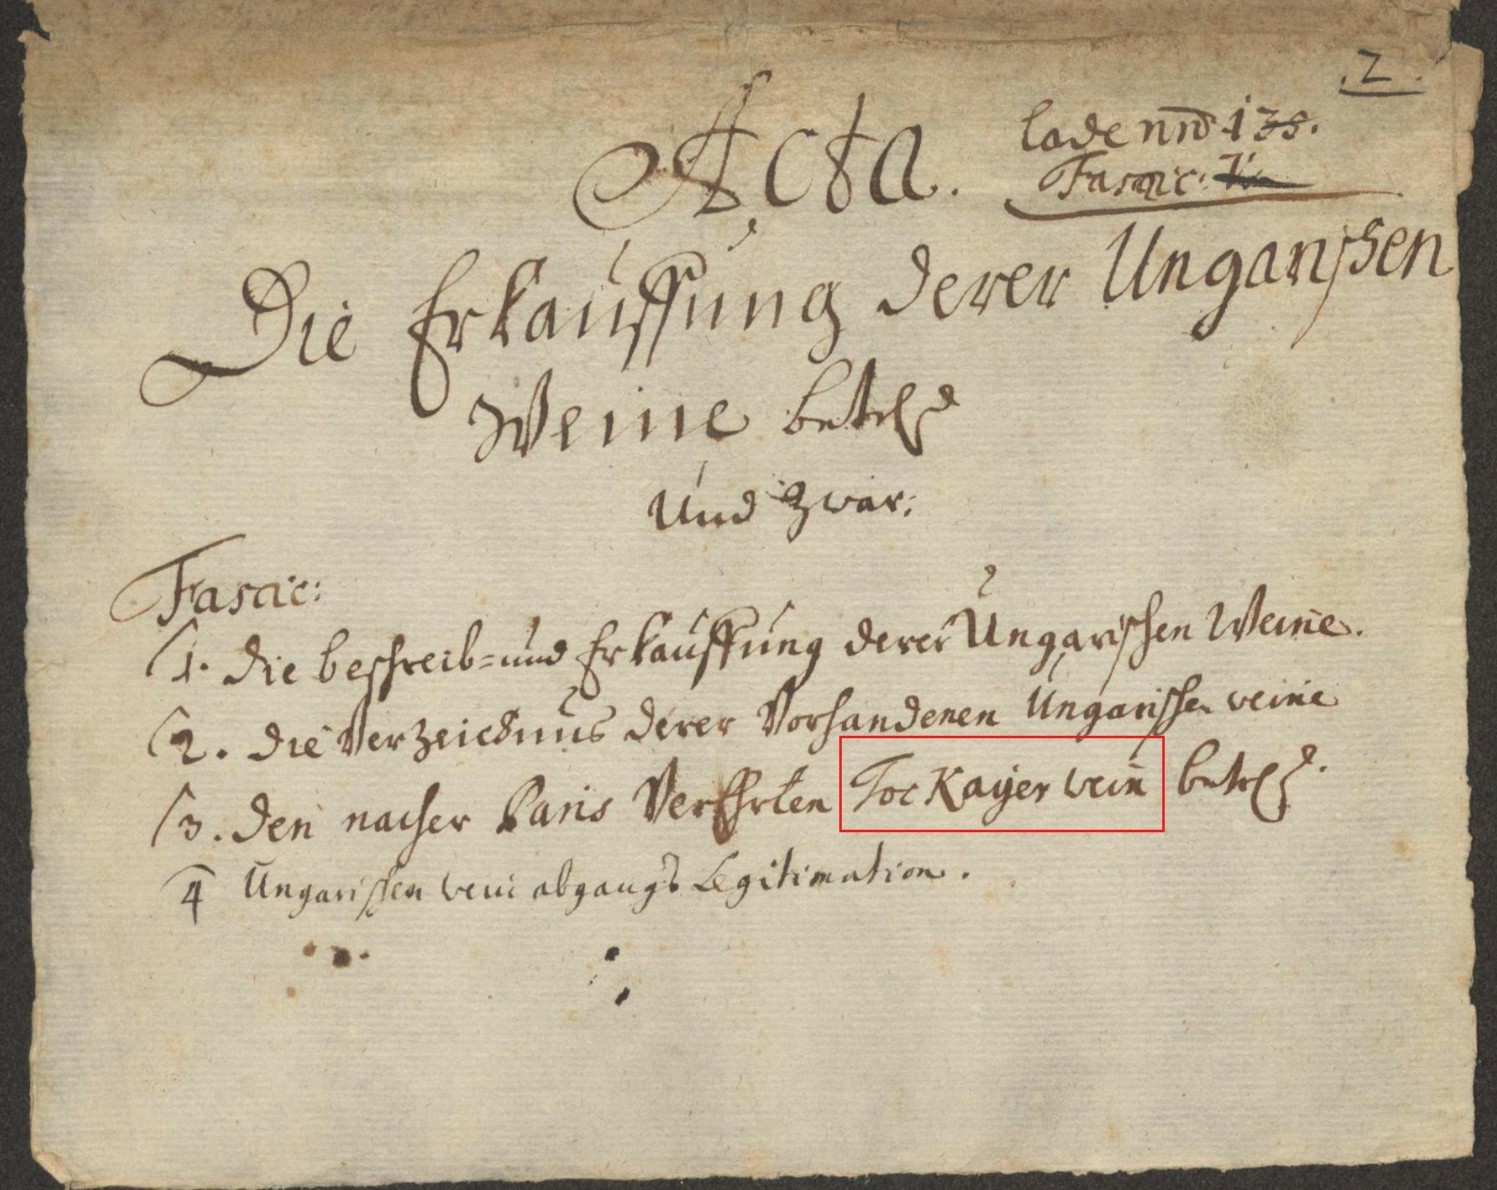 .2.
Acta.
Lade nro 138.
Fascic: 7.
Die Erkauffung derer Ungarischen
Weine betrd
und zwar:
Fascic:
1. die beschreib= und Erkauffung derer Ungarischen Weine.
2. die Verzeichnus derer Vorhandenen Ungarischen weine
3. den nacher Paris Verehrten Tockayer wein betrd.
4 Ungarischen wein abgangs Legitimation.